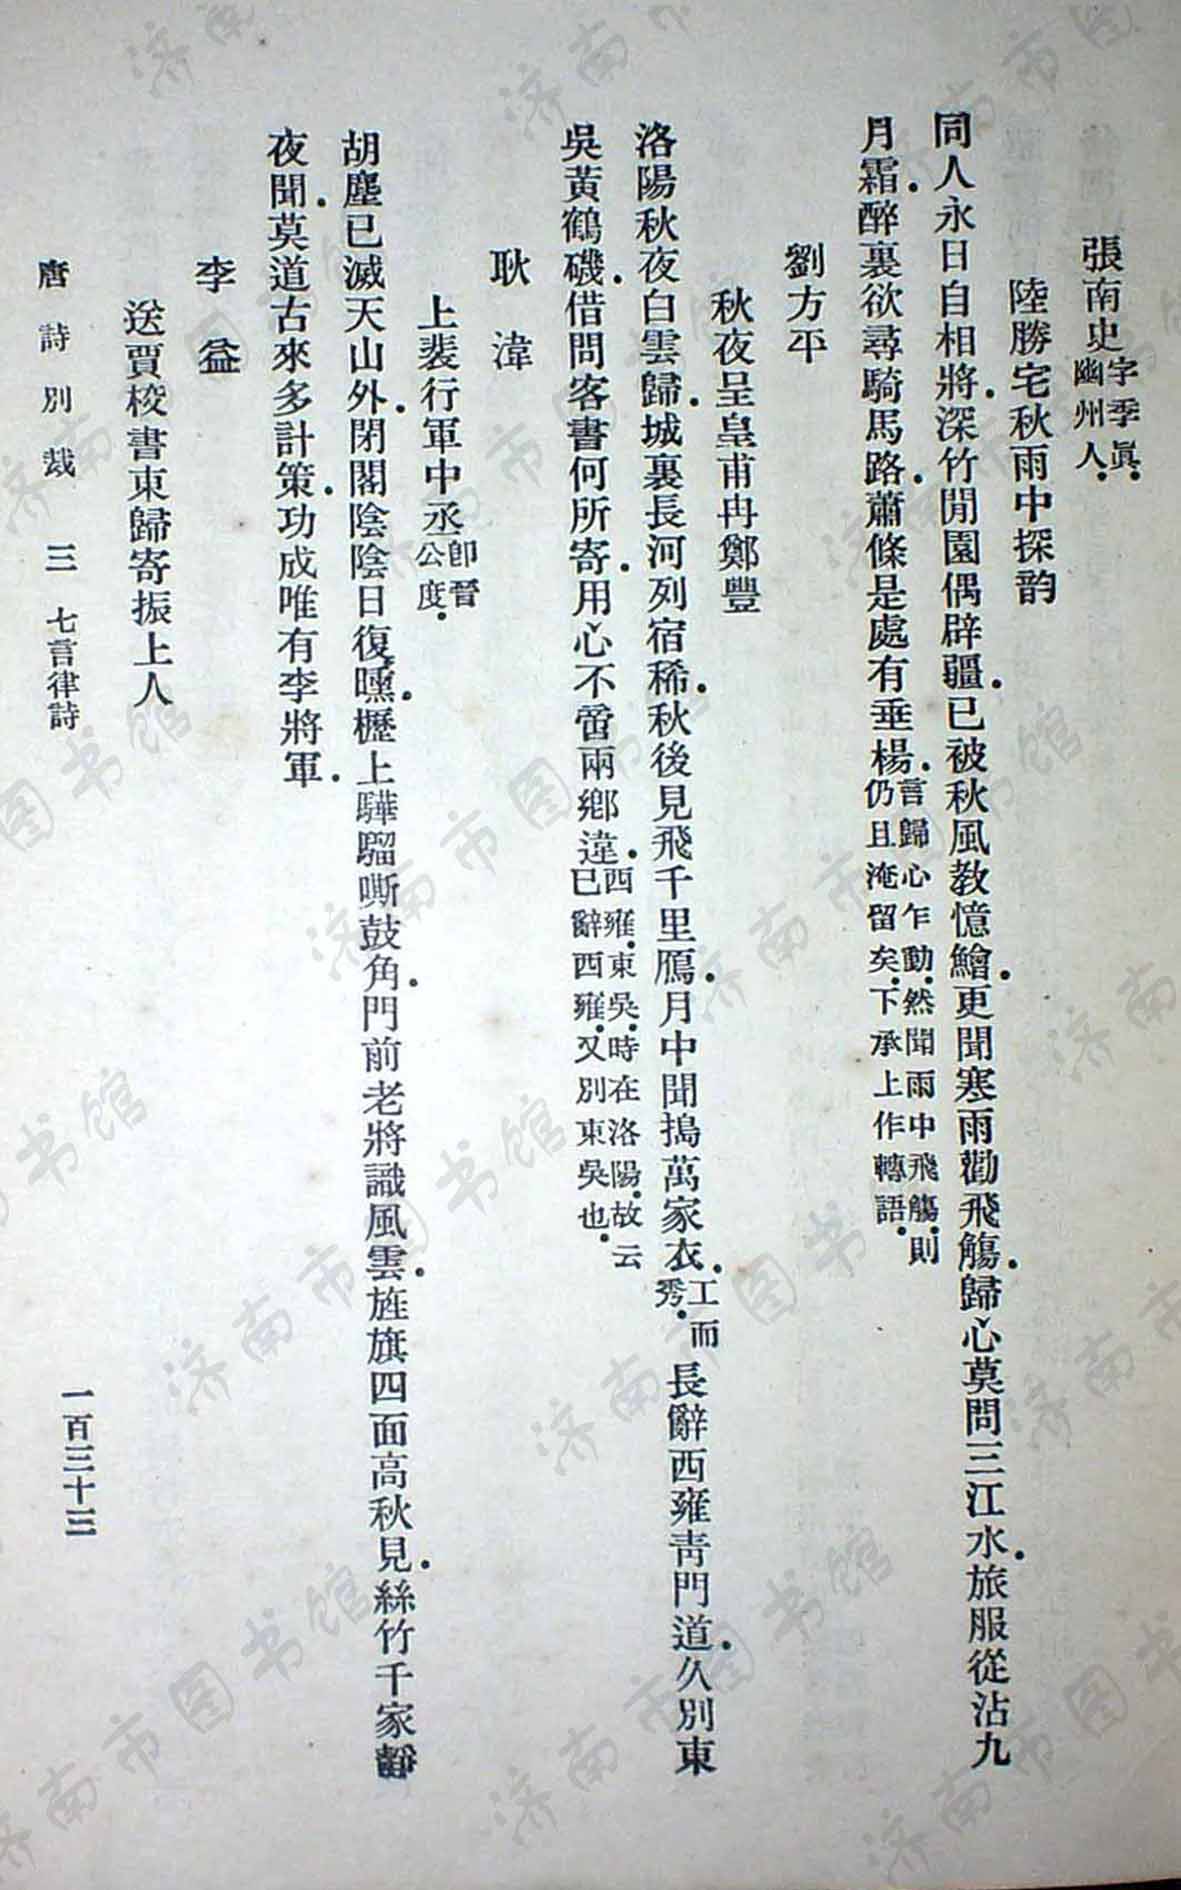 張南史字季眞.幽州人.
陸勝宅秋雨中探韵
同人永日自相將.深竹閒園偶辟疆.已被秋風教憶鱠.更聞寒雨勸飛觴.歸心莫問三江水.旅服從沾九
月霜.醉裏欲尋騎馬路.蕭條是處有垂楊.言歸心乍動.然聞雨中飛觴.則仍且淹留矣.下承上作轉語.
劉方平
秋夜呈皇甫冉鄭豐
洛陽秋夜白雲歸.城裏長河列宿稀.秋後見飛千里鴈.月中聞搗萬家衣.工而秀.長辭西雍青門道.久別東
吳黃鶴磯.借問客書何所寄.用心不啻兩鄉違.西雍.東吳.時在洛陽.故云已辭西雍.又別東吳也.
耿湋
上裴行軍中丞卽晉公度.
胡塵已滅天山外.閉閣陰陰日復曛.櫪上驊騮嘶鼓角.門前老將識風雲.旌旗四面高秋見.絲竹千家靜
夜聞.莫道古來多計策.功成唯有李將軍.
李益
送賈校書東歸寄振上人
唐詩別裁 三 七言律詩 一百三十三
济南市图书馆